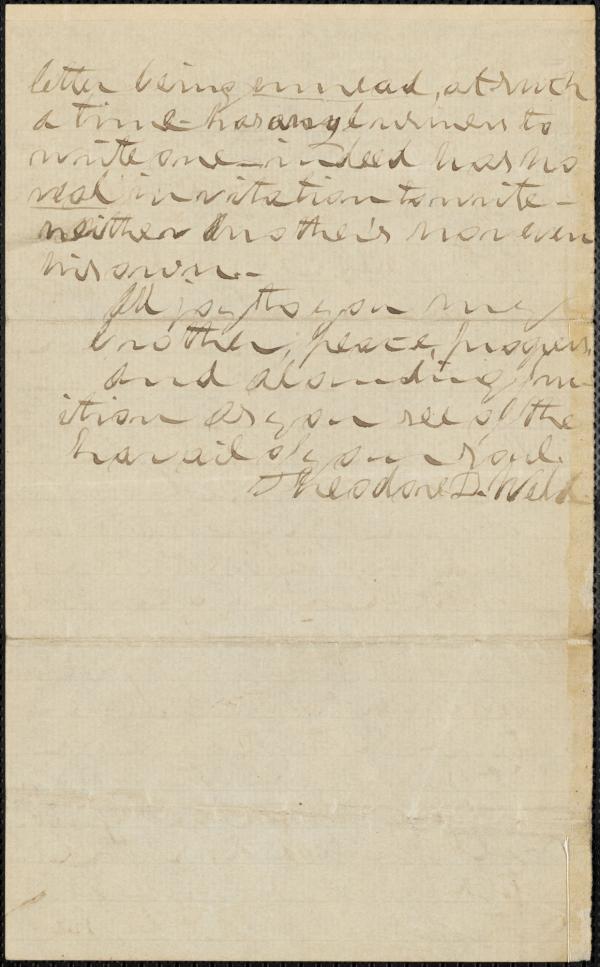 letter being unread, at such
a time - has any business to
write one - indeed has no
real invitation to write -
neither another's nor even
his own. -
All joy to you my
brother, peace, progress,
and abounding fru-
ition as you see of the
travail of your soul.
Theodore D. Weld.